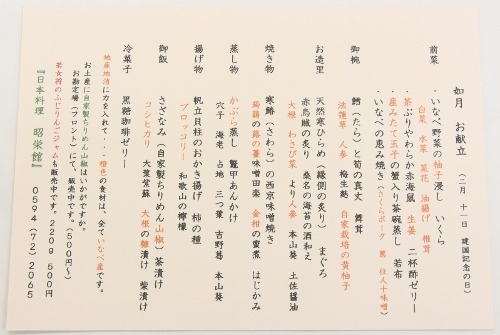 如月 お献立 （二月 十一日 建国記念の日）
前菜
・いなべ野菜の柚子浸し いくら
白菜 水菜 菜花 油揚げ 椎茸
・茶ぶりやわらか赤海鼠 生姜 二杯酢ゼリー
・産みたて玉子の蟹入り茶碗蒸し 若布
・いなべの恵み焼き（さくらポーク 葱 拉人十味噌）
御椀
鱈（たら）と菊の真丈 舞茸
法蓮草 人参 梅生麩 自家栽培の黄柚子
お造里
天然寒ひらめ（縁側の炙り） まぐろ
赤烏賊の炙り 桑名の海苔の酒和え
大根 わさび菜 より人参 本山葵 土佐醤油
焼き物
寒鰆（さわら）の西京味噌焼き
蒟蒻の蕗の薹味噌田楽 金柑の蜜煮 はじかみ
蒸し物
かぶら蒸し 鼈甲あんかけ
穴子 海老 占地 三つ葉 吉野葛 本山葵
揚げ物
帆立貝柱のおかき揚げ 柿の種
ブロッコリー 和歌山の檸檬
御飯
さざなみ（自家製ちりめん山椒）茶漬け
コシヒカリ 大葉紫蘇 大根の麹漬け 柴漬け
冷菓子
黒糖珈琲ゼリー
地産地消に力を入れて・・・橙色の食材は、全ていなべ産です。
お土産に自家製ちりめん山椒はいかがですか。
お勘定場（フロント）にて、販売中です。（５００円～）
若女将のふじりんごジャムも販売中です。２２０ｇ ５００円
『日本料理 昭栄館』 ０５９４（７２）２０６５